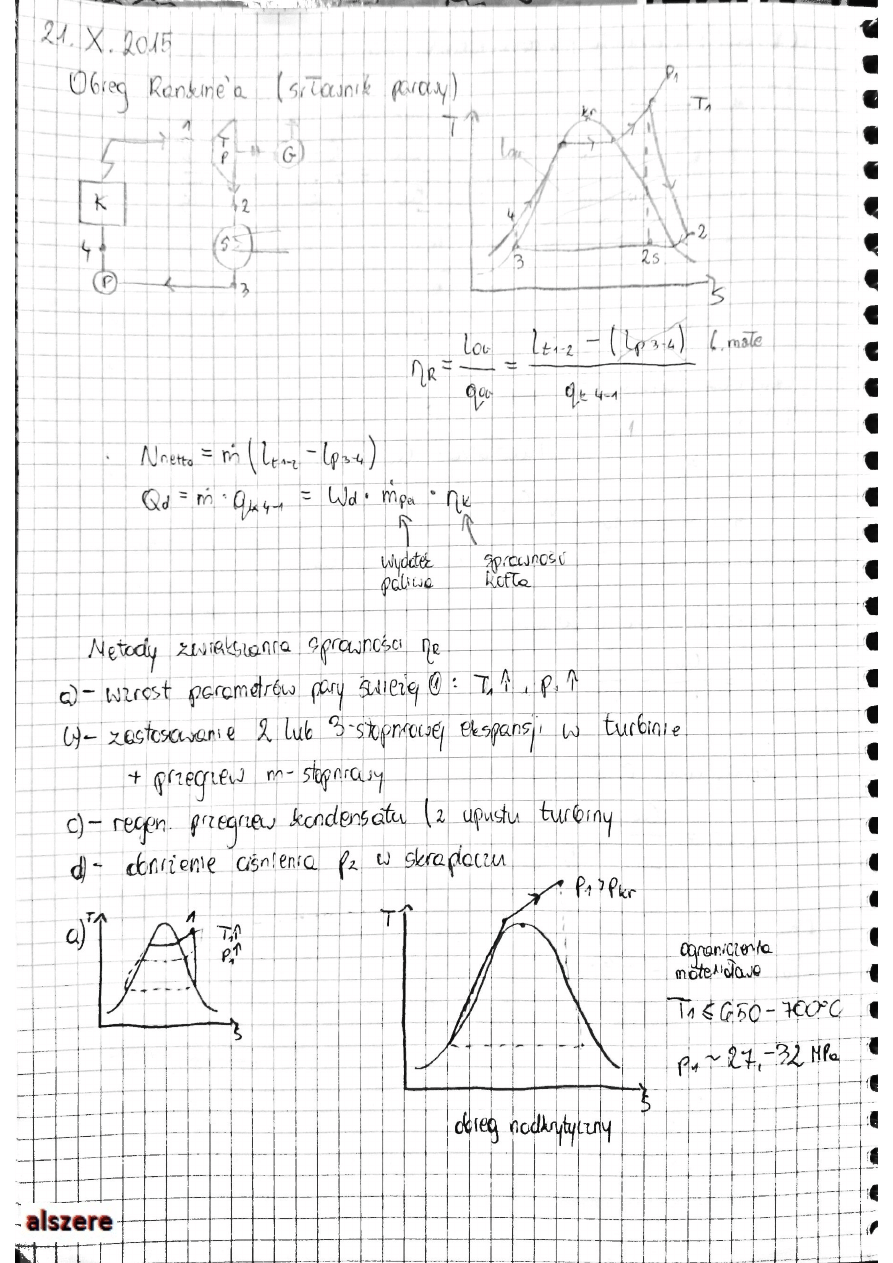 21. X. 2015
Obieg Rankine'a (siłownik parowy)
1
T
P
G
K
2
4
S
P
3
T
kr
P1
T1
lob
4
3
2s
2
S
ηR = lob / qob = (lt1-2 - (lp3-4)) / qk 4-1 b. małe
Nnetto = ṁ (lt1-2 - lp3-4)
Qd = ṁ · qk 4-1 = Wd · ṁpal · ηk
wydatek paliwa
sprawność kotła
Metody zwiększania sprawności ηR
a) - wzrost parametrów pary świeżej ①: T1↑, p1↑
b) - zastosowanie 2 lub 3-stopniowej ekspansji w turbinie
+ przegrzew m-stopniowy
c) - regen. przegrzew kondensatu (z upustu turbiny
d) - obniżenie ciśnienia p2 w skraplaczu
a)
T
1
T1↑
P1↑
S
T
P1 > Pkr
S
obieg nadkrytyczny
ograniczenia
materiałowe
T1 ≤ 650 - 700°C
p1 ~ 27,-32 MPa
alszere